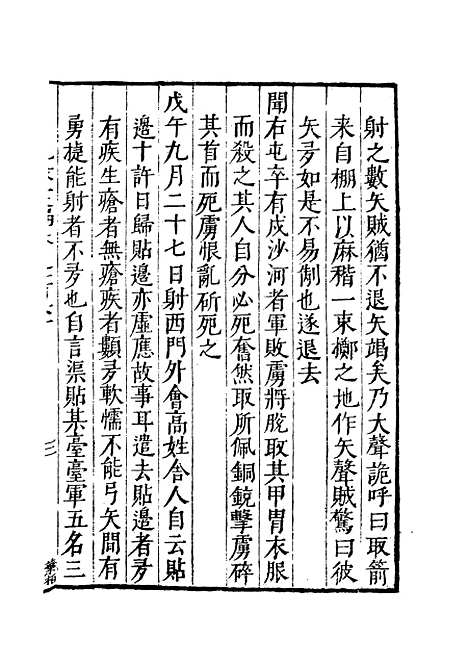 射之數矢賊猶不退矢竭矣乃大聲詭呼曰取箭
来自棚上以麻稭一束擲之地作矢聲賊驚曰彼
矢多如是不易制也遂退去
聞右屯卒有戍沙河者軍敗虜將脫取其甲冑衣服
而殺之其人自分必死奮然取所佩銅鏡擊虜碎
其首而死虜恨亂斫死之
戊午九月二十七日射西門外會高姓舍人自云貼
邊十許日歸貼邊亦虛應故事耳遣去貼邊者多
有疾生瘡者無瘡疾者類多軟懦不能弓矢間有
勇捷能射者不多也自言渠貼某臺臺軍五名三